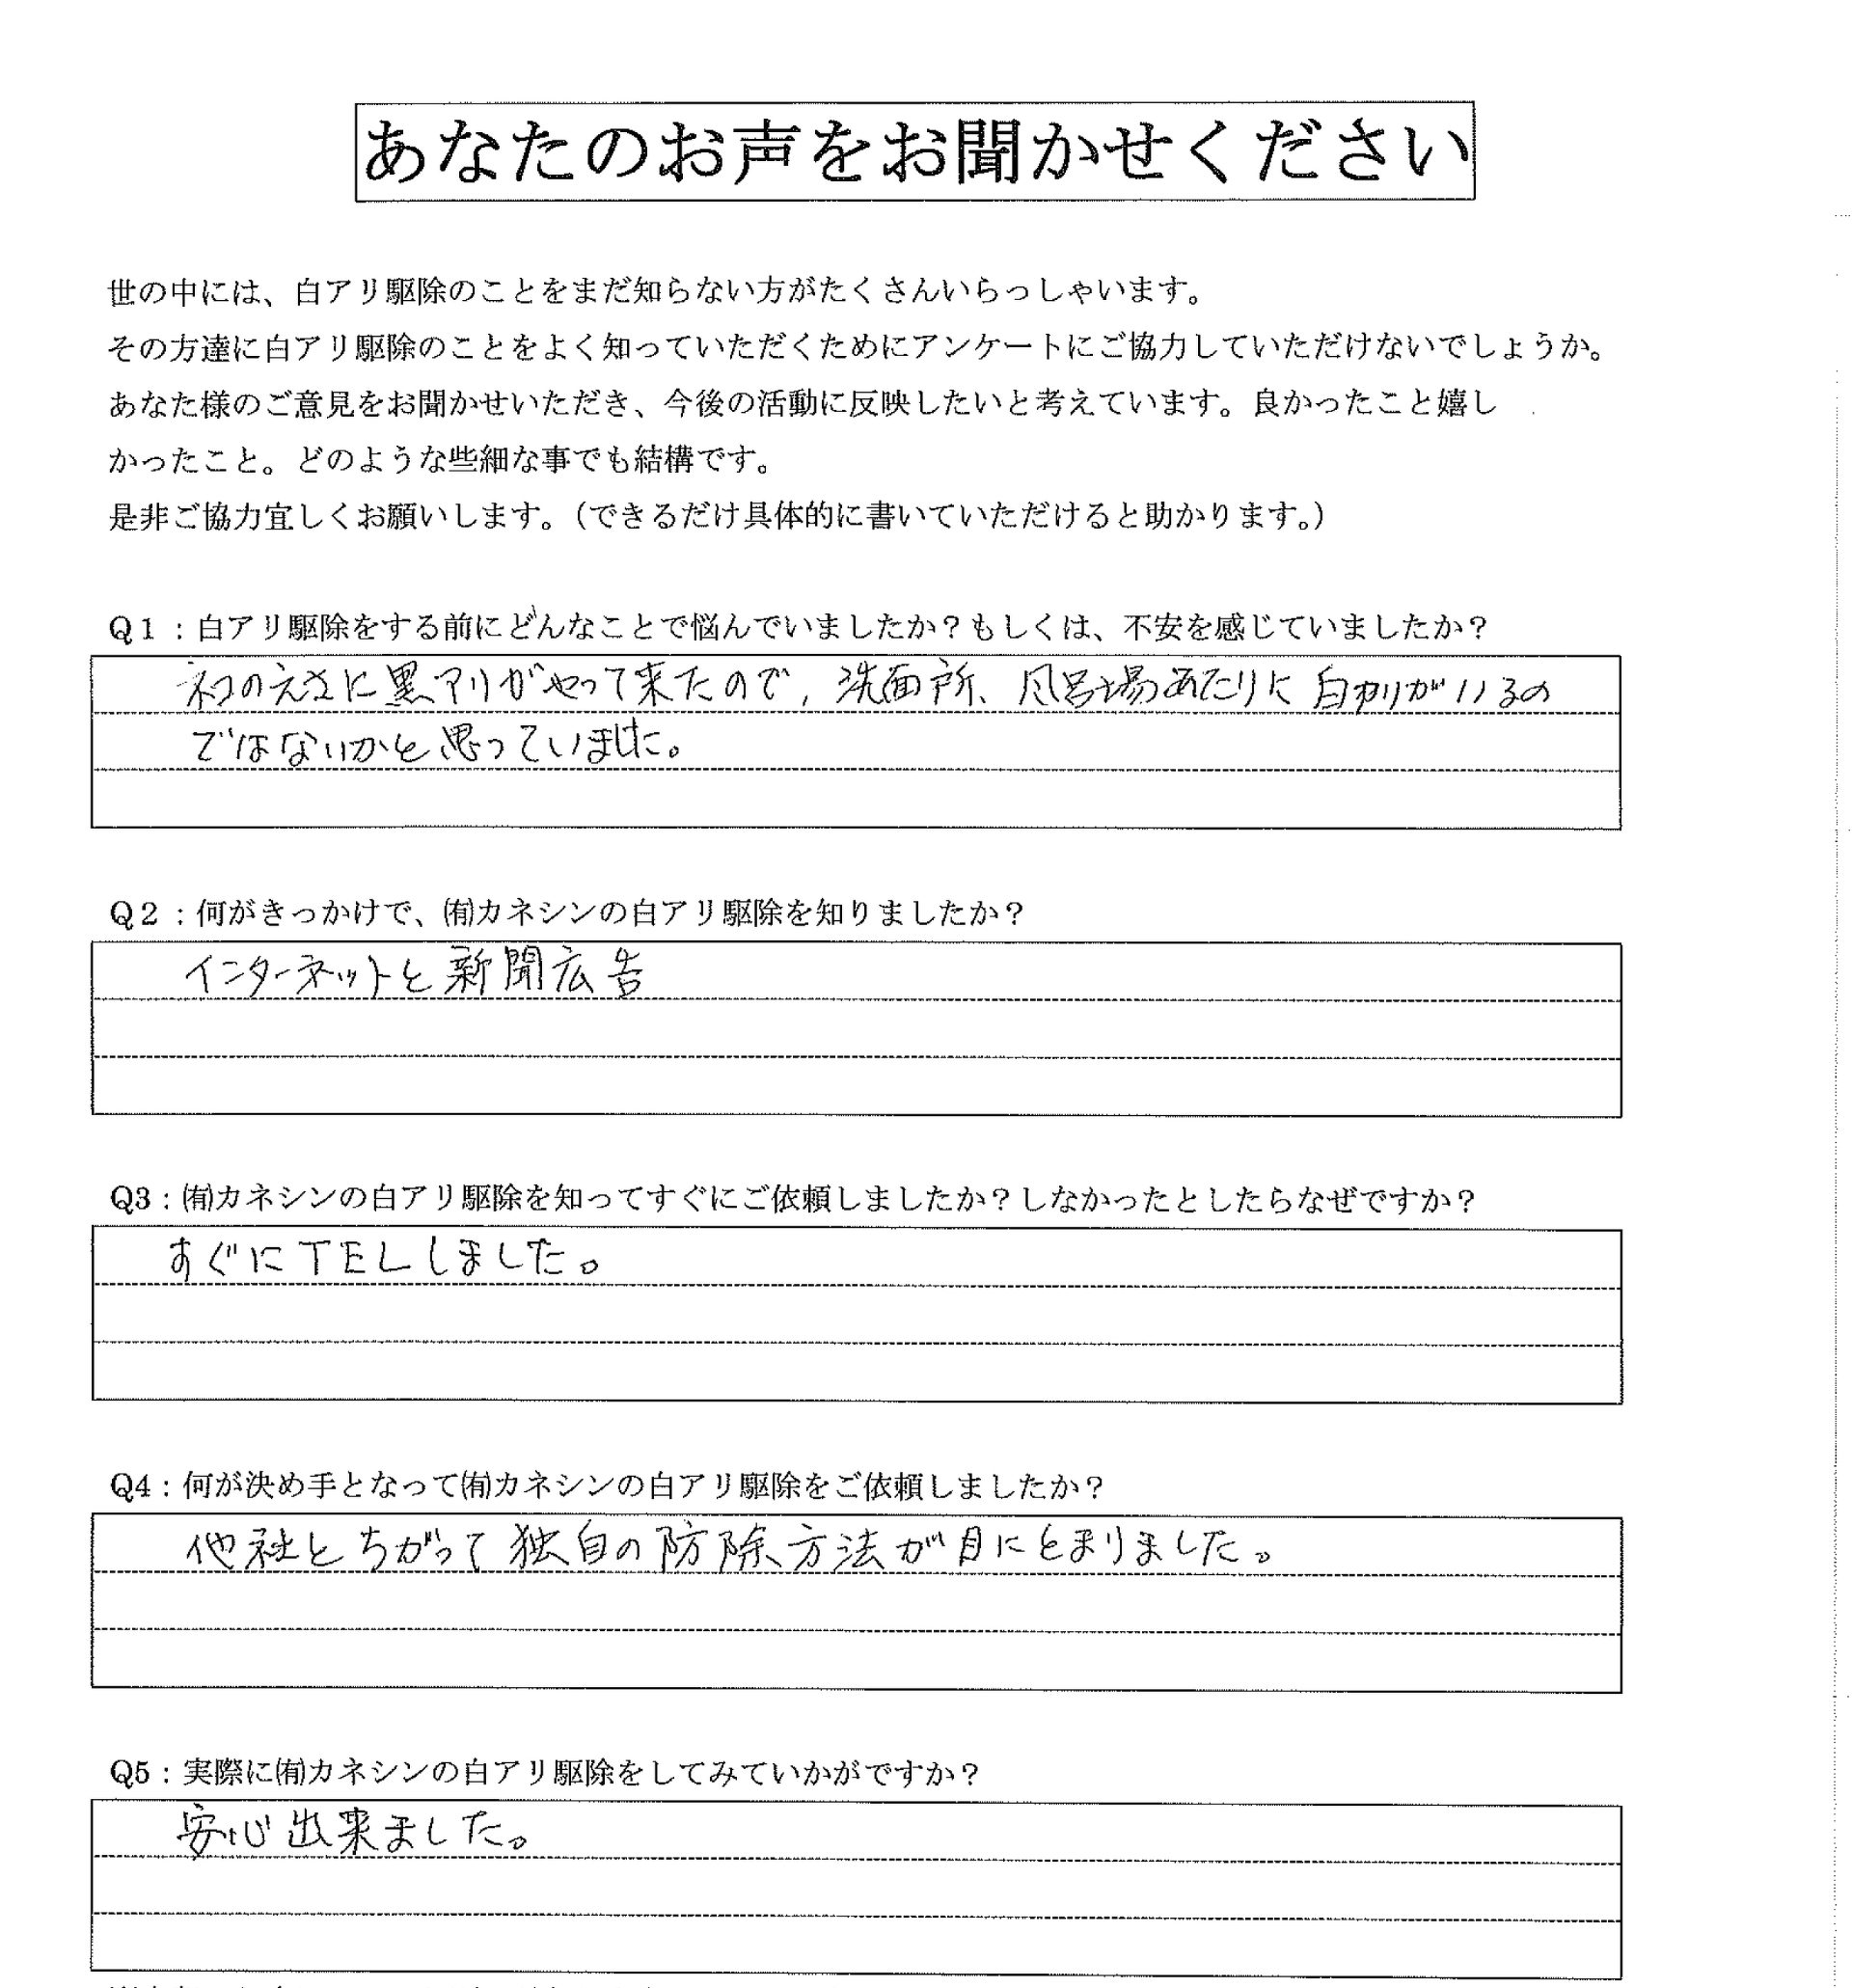 あなたのお声をお聞かせください
世の中には、白アリ駆除のことをまだ知らない方がたくさんいらっしゃいます。
その方達に白アリ駆除のことをよく知っていただくためにアンケートにご協力していただけないでしょうか。
あなた様のご意見をお聞かせいただき、今後の活動に反映したいと考えています。良かったこと嬉し
かったこと。どのような些細な事でも結構です。
是非ご協力宜しくお願いします。（できるだけ具体的に書いていただけると助かります。）
Q1：白アリ駆除をする前にどんなことで悩んでいましたか？もしくは、不安を感じていましたか？
ネコのえさに黒アリがやって来たので、洗面所、風呂場あたりに白アリがいるの
ではないかと思っていました。
Q2：何がきっかけで、㈲カネシンの白アリ駆除を知りましたか？
インターネットと新聞広告
Q3：㈲カネシンの白アリ駆除を知ってすぐにご依頼しましたか？しなかったとしたらなぜですか？
すぐにTELしました。
Q4：何が決め手となって㈲カネシンの白アリ駆除をご依頼しましたか？
他社とちがって独自の防除方法が目にとまりました。
Q5：実際に㈲カネシンの白アリ駆除をしてみていかがですか？
安心出来ました。